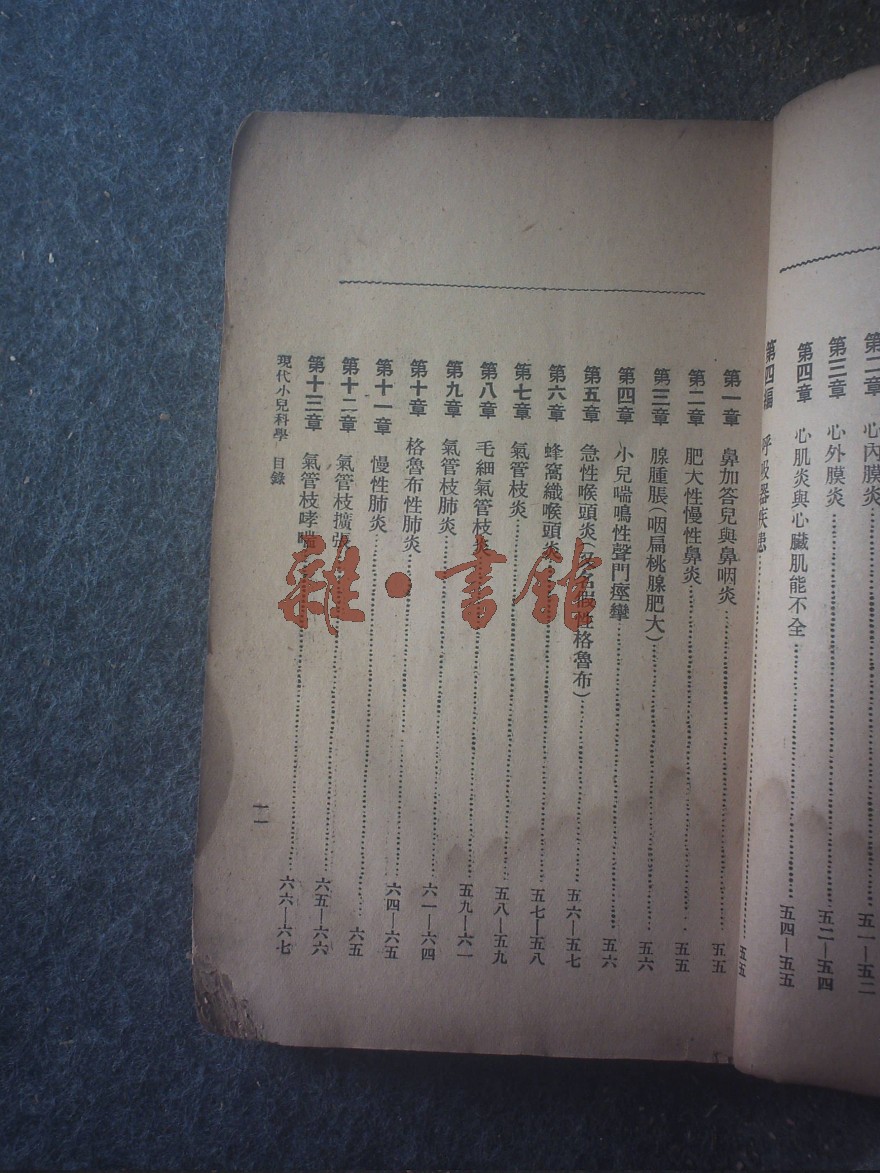 第二章 心內膜炎……五一—五二
第三章 心外膜炎……五二—五四
第四章 心肌炎與心臟肌能不全……五四—五五
第四編 呼吸器疾患……五五
第一章 鼻加答兒與鼻咽炎……五五
第二章 肥大性慢性鼻炎……五五
第三章 腺腫脹(咽扁桃腺肥大)……五六
第四章 小兒喘鳴性聲門痙攣……五六
第五章 急性喉頭炎(又名假性格魯布)……五六—五七
第六章 蜂窩織喉頭炎……五七—五八
第七章 氣管枝炎……五八—五九
第八章 毛細氣管枝炎……五九—六一
第九章 氣管枝肺炎……六一—六四
第十章 格魯布性肺炎……六四—六五
第十一章 慢性肺炎……六五
第十二章 氣管枝擴張……六五—六六
第十三章 氣管枝哮喘……六六—六七
現代小兒科學 目錄
二
雜·書館